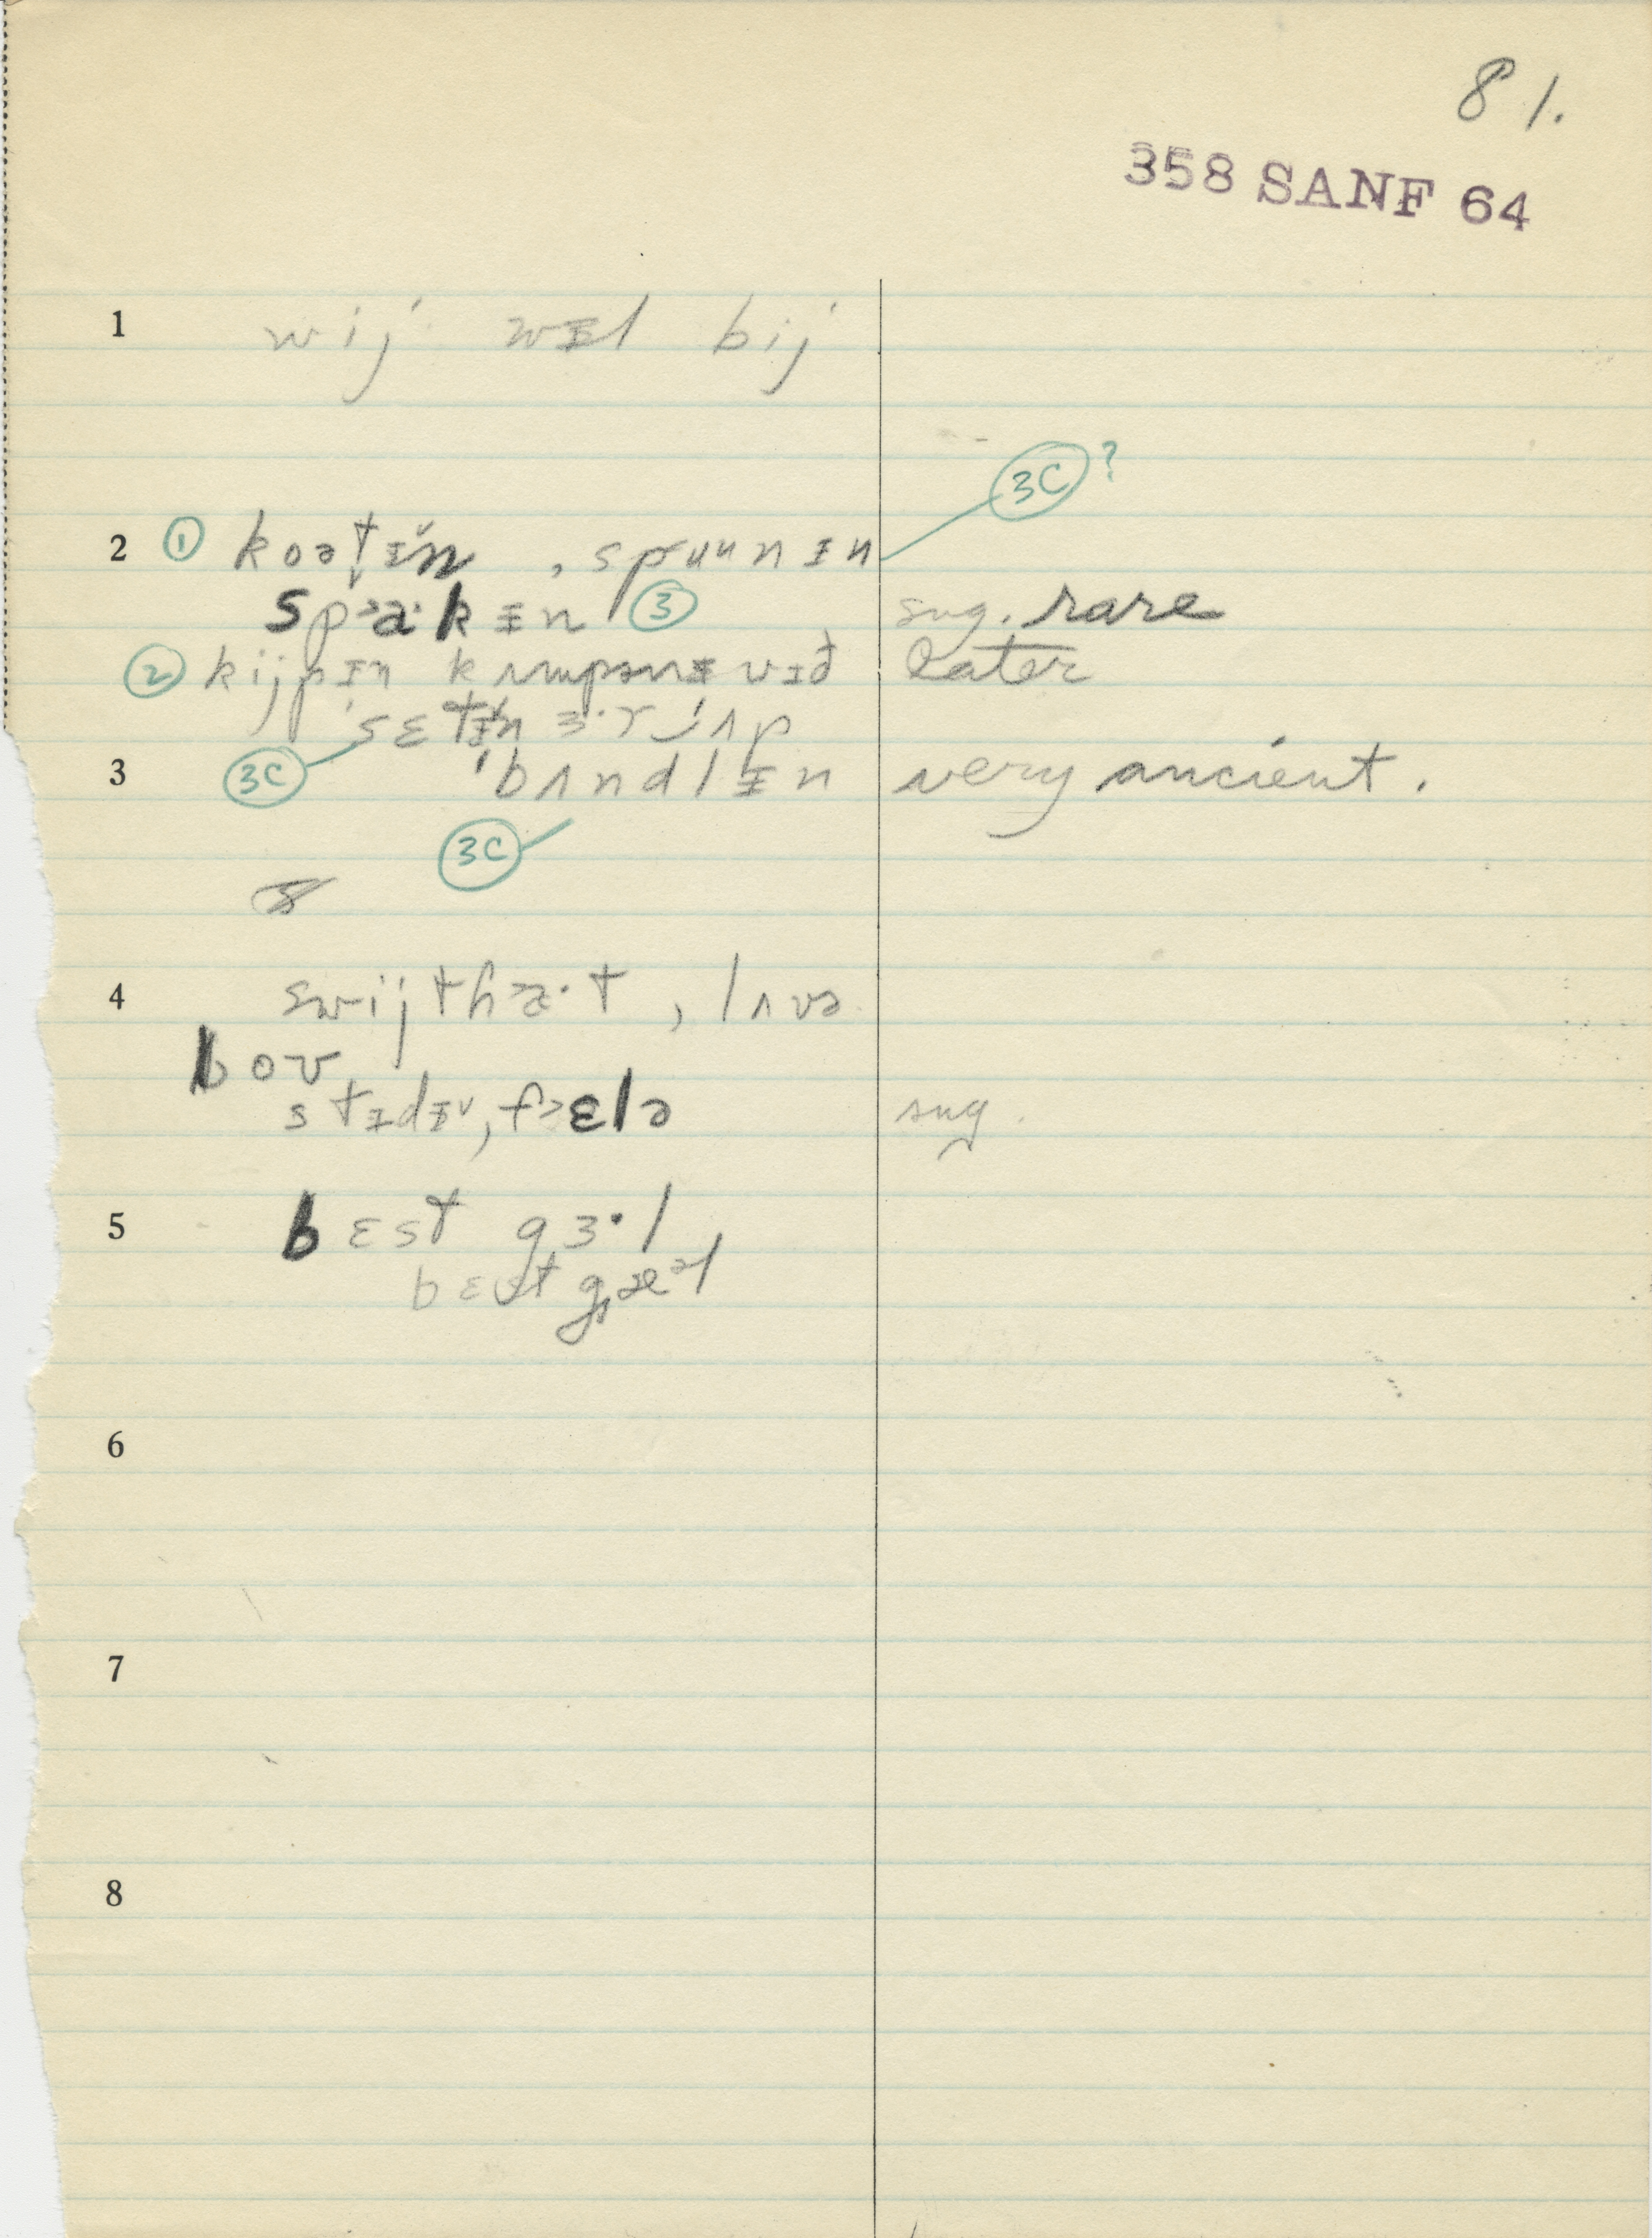 81.
358 SANF 64
1 wij wᵻl bij
3C ?
2 ① koəṱᵻn, spuunᵻn
sp>a·kᵻn ③ sug. rare
② kijpᵻn kʌmpənᵻ vᵻð later
ˈsɛtᵻn ɜ·r ˈʌp
3 3C ˈbʌndlᵻn very ancient.
3C
4 swijtha·t, lʌvə
bov
stᵻdᵻ, f>ɛlə sug.
5 bɛst gɜ·l
bɛst gæəl
6
7
8